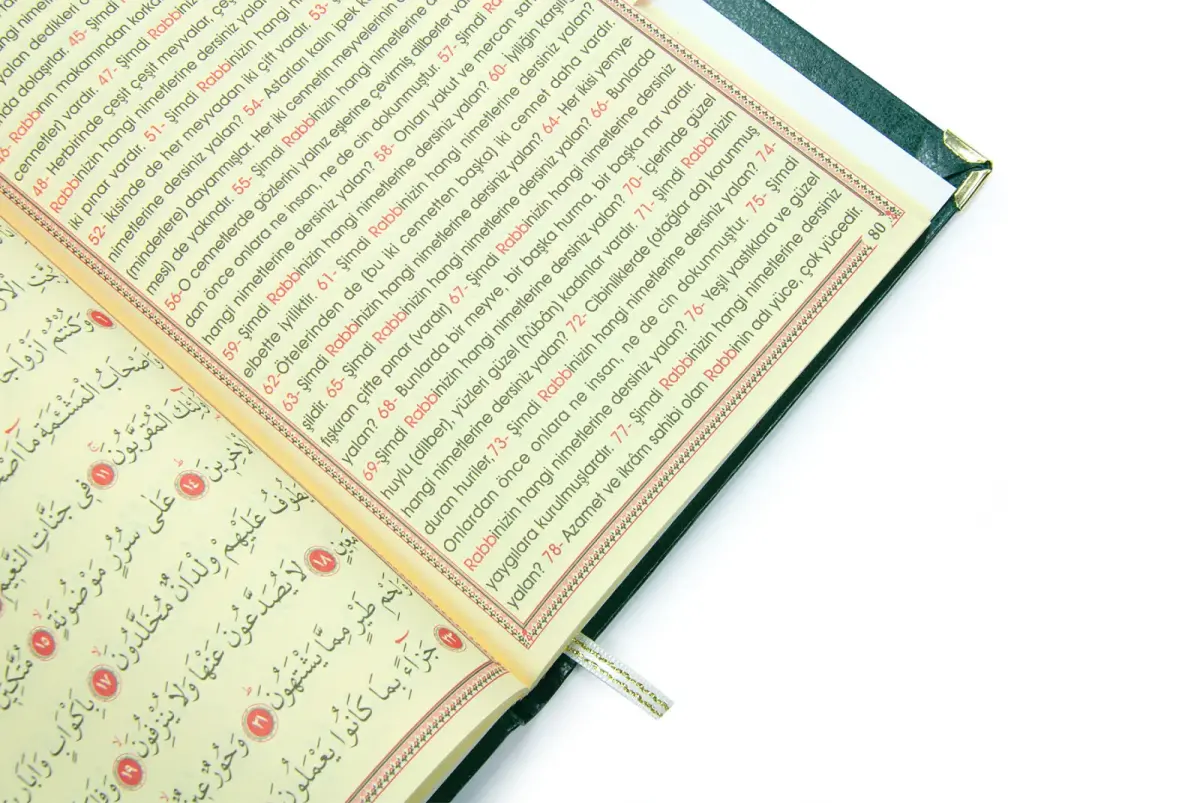 yalan dedikleri
da dolaşırlar. 45- Şimdi
46- Rabbinin makamından korka
cennet(ler) vardır. 47- Şimdi Rabbinizin
48- Herbirinde çeşit çeşit meyvalar,
Rabbinizin hangi nimetlerine dersiniz yalan?
iki pınar vardır. 51- Şimdi Rabbinizin hangi
52- İkisinde de her meyvadan iki çift vardır. 53-
nimetlerine dersiniz yalan? 54- Astarları kalın ipek
(minderlere) dayanmışlar. Her iki cennetin meyvelerinin
mesi) de yakındır. 55- Şimdi Rabbinizin hangi nimetlerine
56-O cennetlerde gözlerini yalnız eşlerine çevirmiş dilberler
dan önce onlara ne insan, ne de cin dokunmuştur. 57- Şimdi
hangi nimetlerine dersiniz yalan? 58- Onlar yakut ve mercan
59- Şimdi Rabbinizin hangi nimetlerine dersiniz yalan? 60- İyiliğin
elbette iyiliktir. 61- Şimdi Rabbinizin hangi nimetlerine dersiniz yalan?
62-Ötelerinden de (bu iki cennetten başka) iki cennet daha vardır.
63- Şimdi Rabbinizin hangi nimetlerine dersiniz yalan? 64- Her ikisi yemye-
şildir. 65- Şimdi Rabbinizin hangi nimetlerine dersiniz yalan? 66- Bunlarda
fışkıran çifte pınar (vardır) 67- Şimdi Rabbinizin hangi nimetlerine dersiniz
yalan? 68- Bunlarda bir meyve, bir başka hurma, bir başka nar vardır.
69-Şimdi Rabbinizin hangi nimetlerine dersiniz yalan? 70- İçlerinde güzel
huylu (dilber), yüzleri güzel (hûbân) kadınlar vardır. 71- Şimdi Rabbinizin
hangi nimetlerine dersiniz yalan? 72- Cibiniklerde (otağlar da) korunmuş
duran huriler, 73- Şimdi Rabbinizin hangi nimetlerine dersiniz yalan? 74-
Onlardan önce onlara ne insan, ne de cin dokunmuştur. 75- Şimdi
Rabbinizin hangi nimetlerine dersiniz yalan? 76- Yeşil yastıklara ve güzel
yaygılara kurulmuşlardır. 77- Şimdi Rabbinizin hangi nimetlerine dersiniz
yalan? 78- Azamet ve ikrâm sahibi olan Rabbinin adı yüce, çok yücedir.
80
وَكُنْتُمْ أَزْوَاجًا
وَأَصْحَابُ الْمَشْـَٔمَةِ مَا
الْمُقَرَّبُونَ ١١ فِي جَنَّاتِ النَّعِيمِ
الْاٰخِرِينَ ١٤ عَلَى سُرُرٍ مَوْضُونَةٍ ١٥
يَطُوفُ عَلَيْهِمْ وِلْدَانٌ مُخَلَّدُونَ ١٧ بِأَكْوَابٍ
١٨ لَا يُصَدَّعُونَ عَنْهَا وَلَا يُنْزِفُونَ ١٩
طَيْرٍ مِمَّا يَشْتَهُونَ ٢١ وَحُورٌ
جَزَاءً بِمَا كَانُوا يَعْمَلُونَ